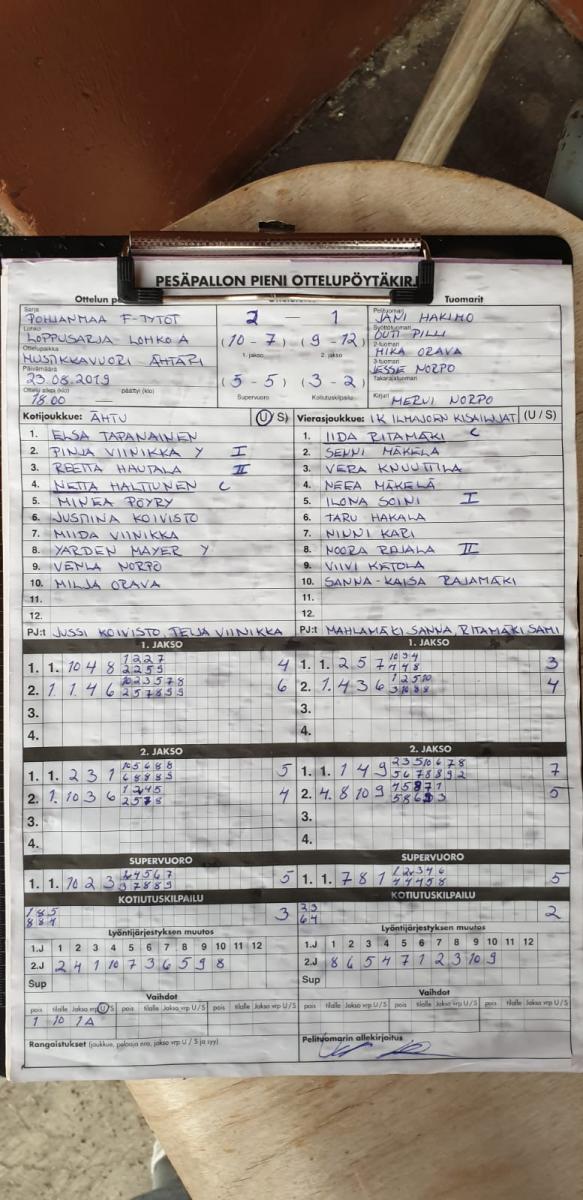 PESÄPALLON PIENI OTTELUPÖYTÄKIRJ
Ottelun Tuomarit
Sarja
POHJANMAA F-TYTÖT
Lohko
LOPPUSARJA LOHKO A
Ottelupaikka
MUSTIKKAVUORI ÄHTÄRI
Päivämäärä
23.08.2019
Ottelu alkoi (klo) päättyi (klo)
18.00
2 1
(10 - 7) (9 - 12)
1. jakso 2. jakso
(5 - 5) (3 - 2)
Supervuoro Kotiutuskilpailu
Pelituomari
JANI HAKIMO
Syöttötuomari
OUTI PILLI
2-tuomari
MIKA ORAVA
3-tuomari
JESSE NORPO
Takarajatuomari
Kirjuri MERVI NORPO
Kotijoukkue: ÄHTU (U/S)
1. ELSA TAPANAINEN
2. PINJA VIINIKKA Y I
3. REETTA HAUTALA II
4. NETTA HALTTUNEN C
5. MINEA PÖYRY
6. JUSTIINA KOIVISTO
7. MIIDA VIINIKKA
8. YARDEN MAYER Y
9. VENLA NORPO
10. MILJA ORAVA
11.
12.
PJ:t JUSSI KOIVISTO, TEIJA VIINIKKA
Vierasjoukkue: IK ILMAJOEN KISAILIJAT (U / S)
1. IIDA RITAMÄKI C
2. SENNI MÄKELÄ
3. VERA KNUUTTILA
4. NEEA MÄKELÄ
5. ILONA SOINI I
6. TARU HAKALA
7. NINNI KARI
8. NOORA RAJALA II
9. VIIVI KETOLA
10. SANNA-KAISA RAJAMÄKI
11.
12.
PJ:t MAHLAMÄKI SANNA RITAMÄKI SAMI
1. JAKSO 1. JAKSO
1. 1. 10 4 8 1 2 2 7 4
2 2 5 5
2. 1. 1 4 6 10 2 3 5 7 8 6
2 5 7 8 5 5
3.
4.
1. 1. 2 5 7 10 3 4 3
4 4 8
2. 1. 4 3 6 1 2 5 10 4
3 10 8 8
3.
4.
2. JAKSO 2. JAKSO
1. 1. 2 3 1 10 5 6 8 8 5
6 8 8 8 5
2. 1. 10 3 6 1 2 4 5 4
3.
4.
1. 1. 1 4 9 2 3 5 10 6 7 8 7
5 6 7 8 8 9 2
2. 4. 8 10 9 5
3.
4.
SUPERVUORO SUPERVUORO
1. 1. 10 2 3 5
1. 1. 7 8 1 1 2 3 4 6 5
4 4 4 5 8
KOTIUTUSKILPAILU KOTIUTUSKILPAILU
1 8 5 3
8 8 4
2 3 2
6 4
Lyöntijärjestyksen muutos Lyöntijärjestyksen muutos
1.J 1 2 3 4 5 6 7 8 9 10 11 12
2.J 2 4 1 10 7 3 6 5 9 8
Sup
1.J 1 2 3 4 5 6 7 8 9 10 11 12
2.J 8 6 5 4 7 1 2 3 10 9
Sup
Vaihdot Vaihdot
pois tilalle Jakso vrp U/S pois tilalle Jakso vrp U / S
pois tilalle Jakso vrp U / S pois tilalle Jakso vrp U / S
1 10 1A
Rangaistukset (joukkue, pelaaja nro, jakso vrp U / S ja syy)
Pelituomarin allekirjoitus